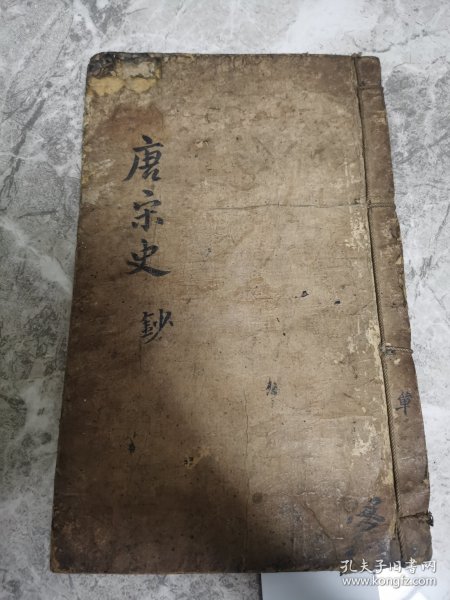 唐宋史
鈔
單
孔夫子旧书网
www.kongfz.com